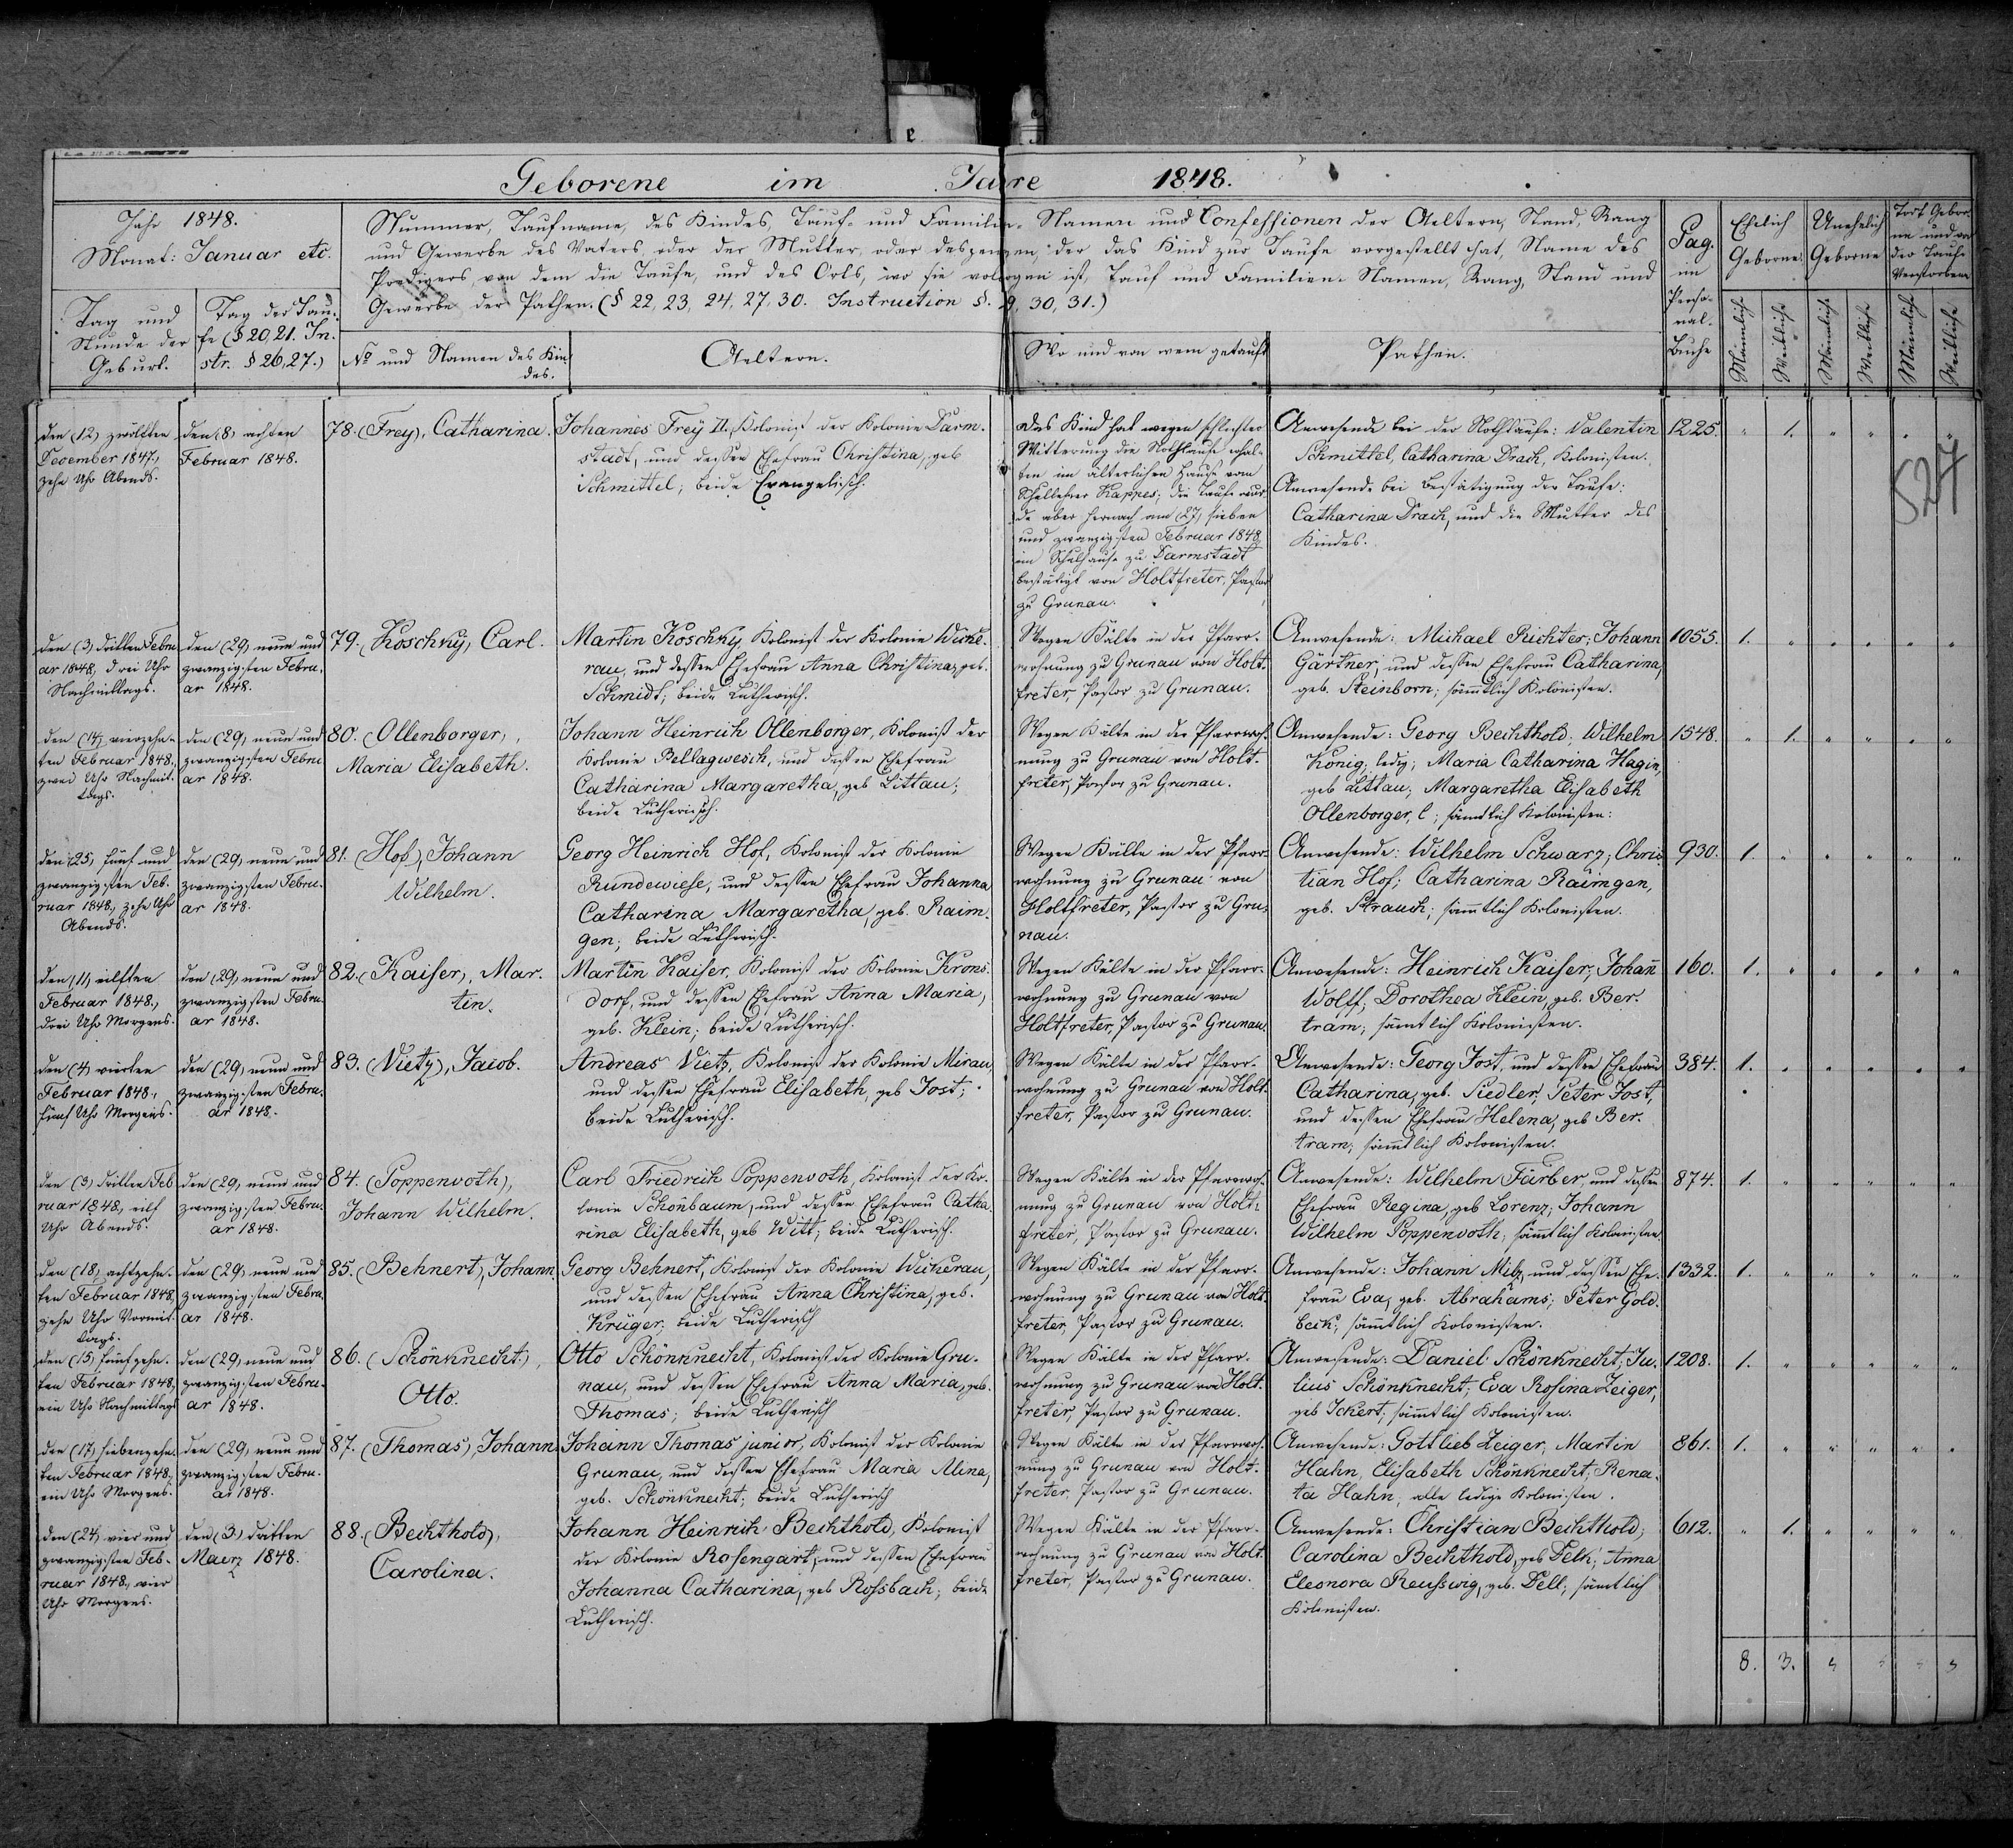 Geborene im Jahre 1848.
Jahr 1848.
Monat: Januar etc.
Nummer, Taufname, des Kindes, Tauf- und Familien-Namen und Confessionen der Aeltern, Stand, Rang
und Gewerbe des Vaters, oder der Mutter, oder desjenigen, der das Kind zur Taufe vorgestellt hat, Name des
Predigers, von dem die Taufe, und des Orts, wo sie vollzogen ist, Tauf und Familien-Namen, Rang, Stand und
Gewerbe der Pathen. (§ 22, 23, 24, 27, 30. Instruction §. 29, 30, 31.)
Tag und
Stunde der
Geburt.
Tag der Tau-
fe (§ 20, 21. In-
str. § 26, 27.)
No und Namen des Kin-
des.
Aeltern.
Wo und von wem getauft
Pathen.
Pag.
im
Perso-
nal-
Buche
Ehelich
Geborne.
Unehelich
Geborne
Todt Gebor-
ne und vor
der Taufe
Verstorbene
Männliche
Weibliche
Männliche
Weibliche
Männliche
Weibliche
527
den (12) zwölften
December 1847.,
zehn Uhr Abends.
den (8) achten
Februar 1848.
78. (Frey), Catharina.
Johannes Frey II. Kolonist der Kolonie Darm-
stadt, und dessen Ehefrau Christina, geb
Schmittel; beide Evangelisch.
Das Kind hat wegen schlechter
Witterung die Nothtaufe erhal-
ten im älterlichen Hause vom
Schullehrer Kappes; die Taufe wur-
de aber hernach am (27) sieben
und zwanzigsten Februar 1848
im Schulhause zu Darmstadt
bestätigt von Holtfreter, Pastor
zu Grunau.
Anwesende bei der Nothtaufe: Valentin
Schmittel, Catharina Drach, Kolonisten.
Anwesende bei Bestätigung der Taufe:
Catharina Drach, und die Mutter des
Kindes.
1225. " 1. " " " "
den (3) dritten Febru-
ar 1848, drei Uhr
Nachmittags.
den (29) neun und
zwanzigsten Febru-
ar 1848.
79. (Koschky), Carl.
Martin Koschky, Kolonist der Kolonie Wicke-
rau, und dessen Ehefrau Anna Christina, geb.
Schmidt; beide Lutherisch.
Wegen Kälte in der Pfarr-
wohnung zu Grunau von Holt-
freter, Pastor zu Grunau.
Anwesende: Michael Richter; Johann
Gärtner, und dessen Ehefrau Catharina,
geb. Steinborn; sämmtlich Kolonisten.
1055. 1. " " " " "
den (14) vierzehn-
ten Februar 1848.,
zwei Uhr Nachmit-
tags.
den (29) neun und
zwanzigsten Febru-
ar 1848.
80. (Ollenborger),
Maria Elisabeth.
Johann Heinrich Ollenborger, Kolonist der
Kolonie Bellagwesch, und dessen Ehefrau
Catharina Margaretha, geb Littau;
beide Lutherisch.
Wegen Kälte in der Pfarrwoh-
nung zu Grunau von Holt-
freter, Pastor zu Grunau.
Anwesende: Georg Bechthold; Wilhelm
König, ledig; Maria Catharina Hagin,
geb Littau; Margaretha Elisabeth
Ollenborger, l; sämtlich Kolonisten:
1548. " 1. " " " "
den (25) fünf und
zwanzigsten Feb-
ruar 1848., zehn Uhr
Abends.
den (29) neun und
zwanzigsten Febru-
ar 1848.
81. (Hof), Johann
Wilhelm.
Georg Heinrich Hof, Kolonist der Kolonie
Rundewiese, und dessen Ehefrau Johanna
Catharina Margaretha, geb. Raim-
gen; beide Lutherisch.
Wegen Kälte in der Pfarr-
wohnung zu Grunau von
Holtfreter, Pastor zu Gru-
nau.
Anwesende: Wilhelm Schwarz; Chris
tian Hof; Catharina Raimgen,
geb. Strauch; sämmtlich Kolonisten.
930. 1. " " " " "
den (11) eilften
Februar 1848.,
drei Uhr Morgens.
den (29) neun und
zwanzigsten Febru-
ar 1848.
82. (Kaiser), Mar-
tin.
Martin Kaiser, Kolonist der Kolonie Krons-
dorf, und dessen Ehefrau Anna Maria,
geb. Klein; beide Lutherisch.
Wegen Kälte in der Pfarr-
wohnung zu Grunau von
Holtfreter, Pastor zu Grunau.
Anwesende: Heinrich Kaiser; Johan̄
Wolff; Dorothea Klein, geb. Ber-
tram; sämtlich Kolonisten.
160. 1. " " " " "
den (4) vierten
Februar 1848.,
fünf Uhr Morgens.
den (29) neun und
zwanzigsten Febru-
ar 1848.
83. (Vietz), Jacob.
Andreas Vietz, Kolonist der Kolonie Mirau,
und dessen Ehefrau Elisabeth, geb Jost;
beide Lutherisch.
Wegen Kälte in der Pfarr-
wohnung zu Grunau von Holt-
freter, Pastor zu Grunau.
Anwesende: Georg Jost, und dessen Ehefrau
Catharina, geb. Siedler; Peter Jost,
und dessen Ehefrau Helena, geb Ber-
tram; sämmtlich Kolonisten.
384. 1. " " " " "
den (3) dritten Feb
ruar 1848, eilf
Uhr Abends.
den (29) neun und
zwanzigsten Febru-
ar 1848.
84. (Poppenroth),
Johann Wilhelm.
Carl Friedrich Poppenroth, Kolonist der Ko-
lonie Schönbaum, und dessen Ehefrau Catha-
rina Elisabeth, geb Witt; beide Lutherisch.
Wegen Kälte in der Pfarrwoh-
nung zu Grunau von Holt-
freter, Pastor zu Grunau.
Anwesende: Wilhelm Färber, und dessen
Ehefrau Regina, geb Lorenz; Johann
Wilhelm Poppenroth; sämmtlich Kolonisten
874. 1. " " " " "
den (18) achtzehn-
ten Februar 1848,
zehn Uhr Vormit-
tags.
den (29) neun und
zwanzigsten Febru-
ar 1848.
85. (Behnert), Johann
Georg Behnert, Kolonist der Kolonie Wickerau,
und dessen Ehefrau Anna Christina, geb.
Krüger; beide Lutherisch
Wegen Kälte in der Pfarr-
wohnung zu Grunau von Holt-
freter, Pastor zu Grunau.
Anwesende: Johann Milz, und dessen Ehe-
frau Eva, geb. Abrahams; Peter Gold-
beck; sämmtlich Kolonisten.
1332. 1. " " " " "
den (15) fünfzehn-
ten Februar 1848,
ein Uhr Nachmittags
den (29) neun und
zwanzigsten Febru-
ar 1848.
86. (Schönknecht),
Otto.
Otto Schönknecht, Kolonist der Kolonie Gru-
nau, und dessen Ehefrau Anna Maria, geb.
Thomas; beide Lutherisch
Wegen Kälte in der Pfarr-
wohnung zu Grunau von Holt-
freter, Pastor zu Grunau.
Anwesende: Daniel Schönknecht; Ju-
lius Schönknecht; Eva Rosina Zeiger,
geb Ickert; sämmtlich Kolonisten.
1208. 1. " " " " "
den (17) siebenzehn-
ten Februar 1848,
ein Uhr Morgens.
den (29) neun und
zwanzigsten Febru-
ar 1848.
87. (Thomas), Johann
Johann Thomas junior, Kolonist der Kolonie
Grunau, und dessen Ehefrau Maria Alina,
geb. Schönknecht; beide Lutherisch
Wegen Kälte in der Pfarrwoh-
nung zu Grunau von Holt-
freter, Pastor zu Grunau.
Anwesende: Gottlieb Zeiger; Martin
Hahn, Elisabeth Schönknecht; Rena-
ta Hahn, alle ledige Kolonisten.
861. 1. " " " " "
den (24) vier und
zwanzigsten Feb-
ruar 1848., vier
Uhr Morgens.
den (3) dritten
Maerz 1848.
88. (Bechthold),
Carolina.
Johann Heinrich Bechthold, Kolonist
der Kolonie Rosengart, und dessen Ehefrau
Johanna Catharina, geb Rossbach; beide
Lutherisch.
Wegen Kälte in der Pfarr-
wohnung zu Grunau von Holt-
freter, Pastor zu Grunau.
Anwesende: Christian Bechthold;
Carolina Bechthold, geb Delk; Anna
Eleonora Reusswig, geb. Dell; sämtlich
Kolonisten.
612. " 1. " " " "
8. 3.